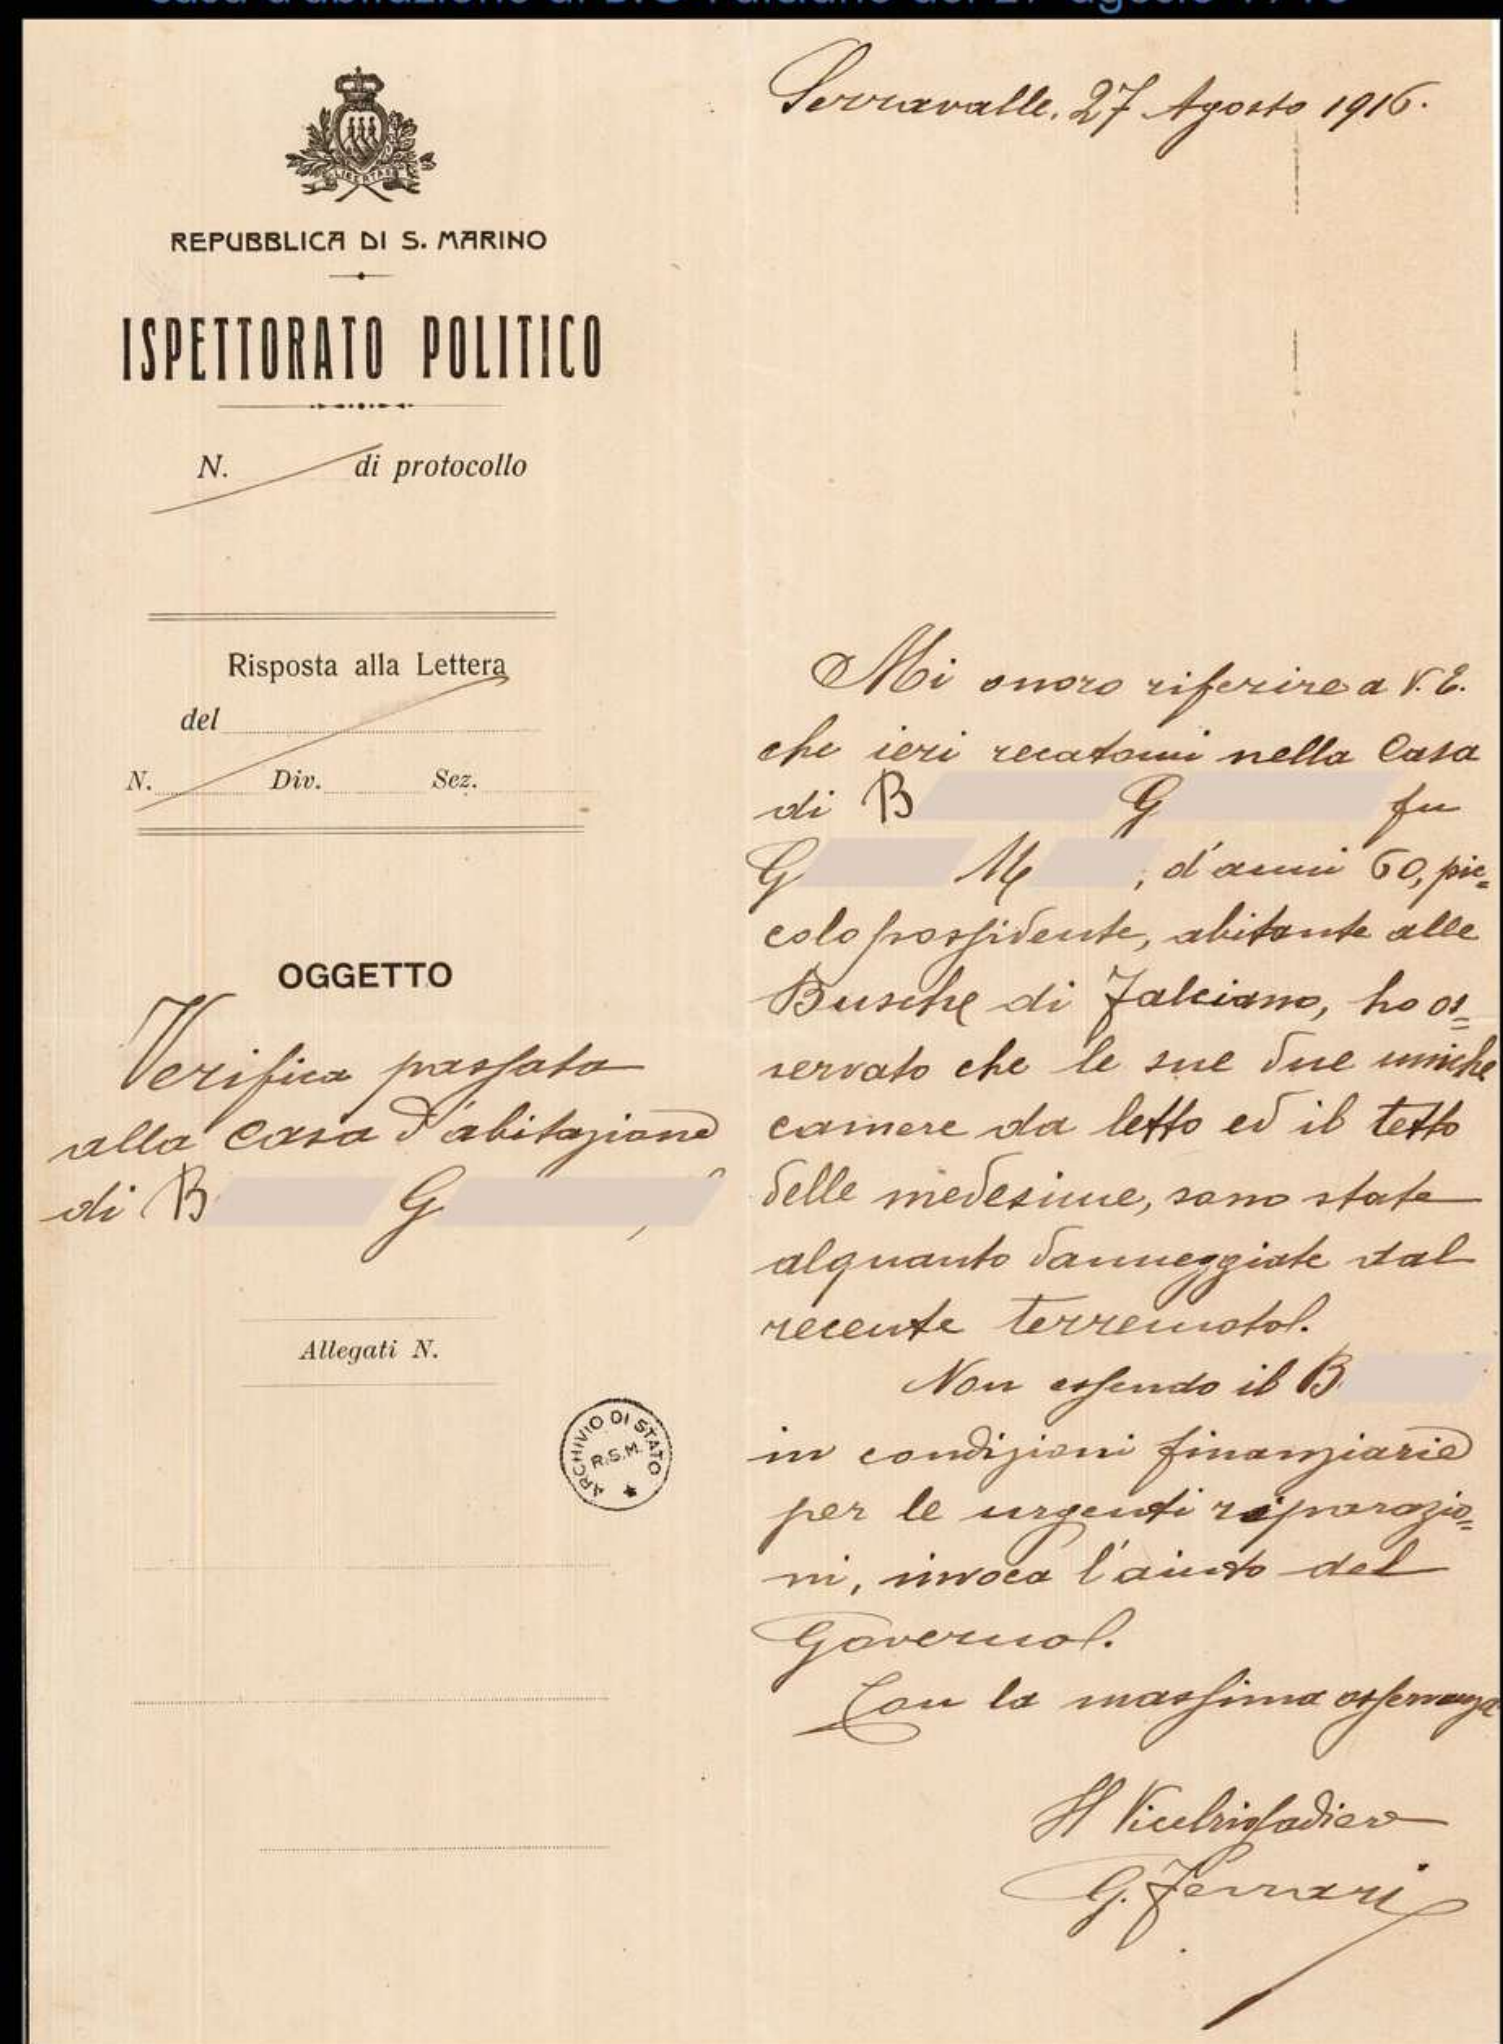 LIBERTAS
REPUBBLICA DI S. MARINO
ISPETTORATO POLITICO
N. di protocollo
Risposta alla Lettera
del
N. Div. Sez.
OGGETTO
Verifica passata
alla casa d'abitazione
di B G
Allegati N.
ARCHIVIO DI STATO
R.S.M.
Serravalle, 27 Agosto 1916.
Mi onoro riferire a V. E.
che ieri recatomi nella Casa
di B G fu
G M , d'anni 60, pic=
colo possidente, abitante alle
Busche di Falciano, ho os=
servato che le sue due uniche
camere da letto ed il tetto
delle medesime, sono state
alquanto danneggiate dal
recente terremoto.
Non essendo il B
in condizioni finanziarie
per le urgenti riparazio=
ni, invoca l'aiuto del
Governo.
Con la massima osservanza
Il Vicebrigadiere
G. Ferrari